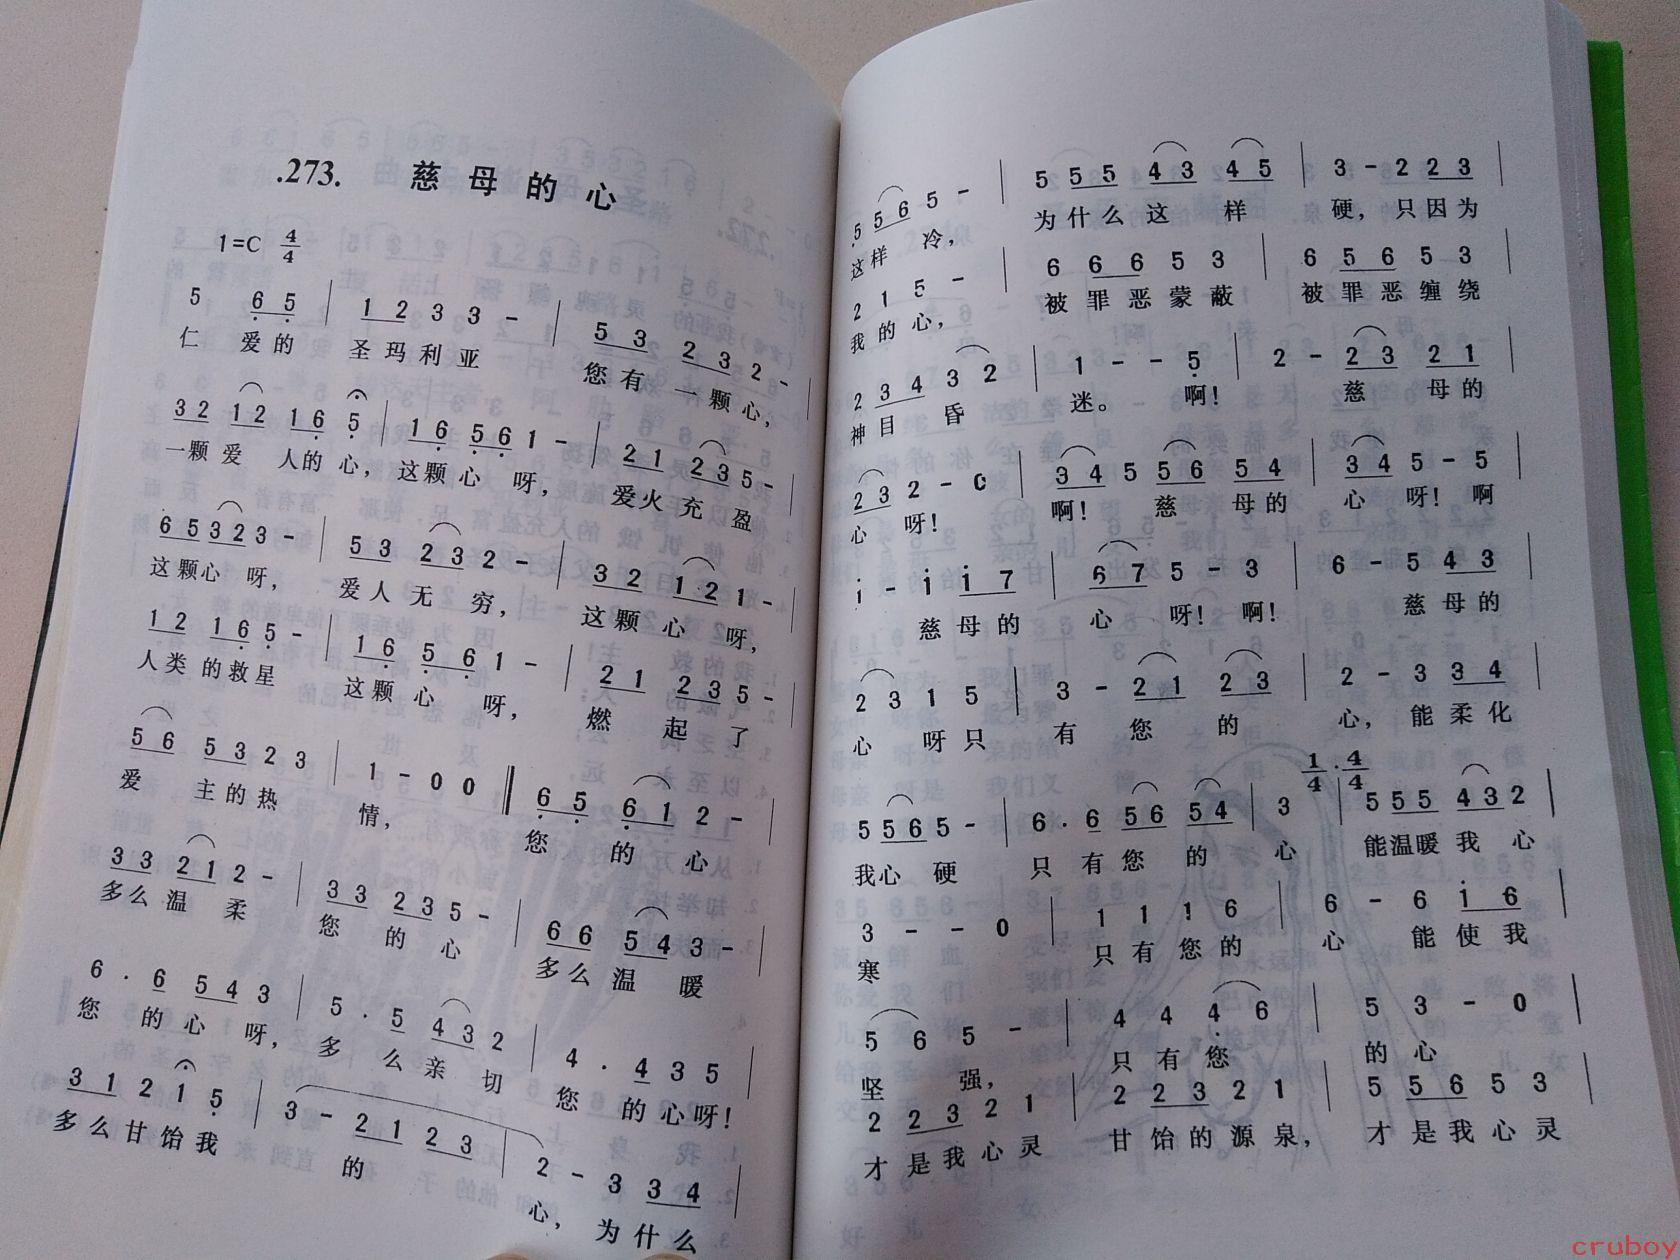 .273. 慈母的心
1=C 4/4
5 6 5 | 1 2 3 3 - | 5 3 2 3 2 - |
仁 爱的 圣玛利亚 您有 一颗心，
3 2 1 2 1 6 5 | 1 6 5 6 1 - | 2 1 2 3 5 - |
一颗爱 人的心，这颗心 呀， 爱火充盈
6 5 3 2 3 - | 5 3 2 3 2 - | 3 2 1 2 1 - |
这颗心 呀， 爱人无穷， 这颗心 呀，
1 2 1 6 5 - | 1 6 5 6 1 - | 2 1 2 3 5 - |
人类的救星 这颗心 呀， 燃 起了
5 6 5 3 2 3 | 1 - 0 0 ‖ 6 5 6 1 2 - |
爱 主的热 情， 您 的 心
3 3 2 1 2 - | 3 3 2 3 5 - | 6 6 5 4 3 - |
多么温 柔 您 的心 多么温 暖
6 · 6 5 4 3 | 5 · 5 4 3 2 | 4 · 4 3 5 |
您 的心 呀， 多 么亲 切 您 的心呀！
3 1 2 1 5 | 3 - 2 1 2 3 | 2 - 3 3 4 |
多么甘饴我 的 心，为什么
5 5 6 5 - | 5 5 5 4 3 4 5 | 3 - 2 2 3 |
这样 冷， 为什么这 样 硬，只因为
2 1 5 - | 6 6 6 5 3 | 6 5 6 5 3 |
我的心， 被罪恶蒙蔽 被罪恶缠绕
2 3 4 3 2 | 1 - - 5 | 2 - 2 3 2 1 |
神目 昏 迷。 啊！ 慈 母的
2 3 2 - 0 | 3 4 5 5 6 5 4 | 3 4 5 - 5 |
心 呀！ 啊！ 慈 母的 心 呀！啊
i - i i 7 | 6 7 5 - 3 | 6 - 5 4 3 |
慈母的 心 呀！啊！ 慈母的
2 3 1 5 | 3 - 2 1 2 3 | 2 - 3 3 4 |
心 呀只 有 您 的 心，能柔化
5 5 6 5 - | 6 · 6 5 6 5 4 | 1/4 3 | 4/4 5 5 5 4 3 2 |
我心 硬 只 有您 的 心 能温暖我 心
3 - - 0 | 1 1 1 6 | 6 - 6 i 6 |
寒 只有您的 心 能使我
5 6 5 - | 4 4 4 6 | 5 3 - 0 |
坚 强， 只有您 的心
2 2 3 2 1 | 2 2 3 2 1 | 5 5 6 5 3 |
才是我心灵 甘饴的源泉， 才是我心灵
cruboy